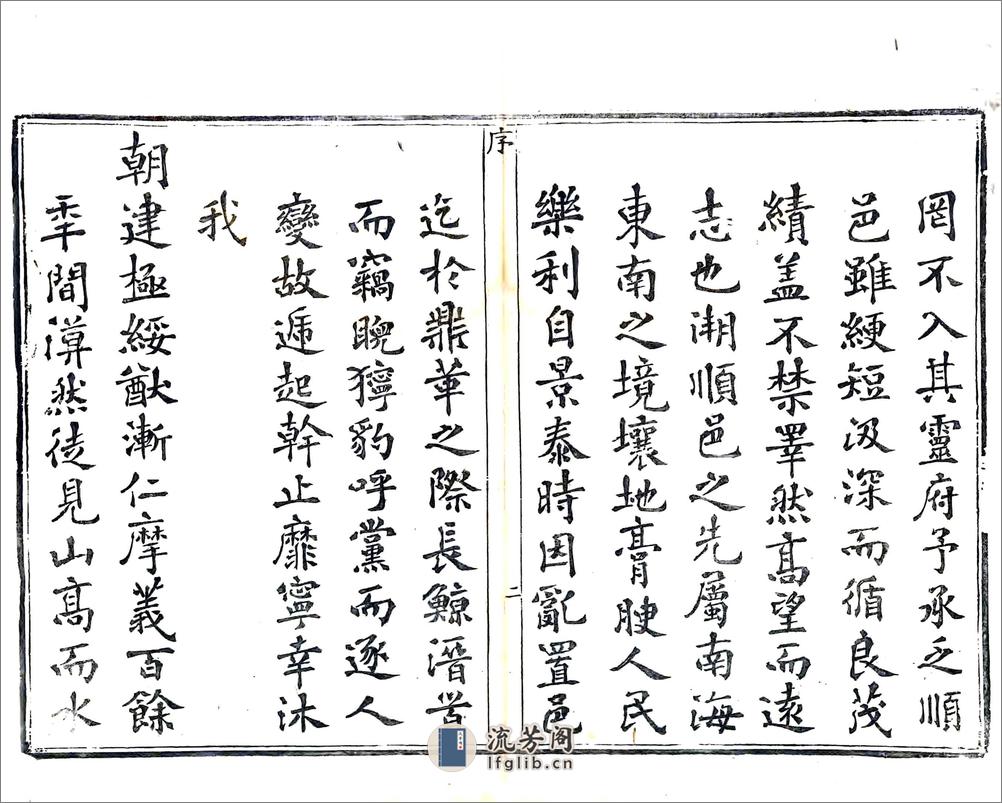 罔不入其靈府予承乏順
邑雖綆短汲深而循良茂
績盖不禁睪然髙望而遠
志也溯順邑之先屬南海
東南之境壤地膏腴人民
樂利自景泰時因亂置邑
序
二
迄於鼎革之際長鯨潛
而竊睨獰豹呼黨而逐人
變故遞起幹止靡寧幸沐
我
朝建極綏猷漸仁摩義百餘
年間渾然徒見山髙而水
流芳阁
lfglib.cn